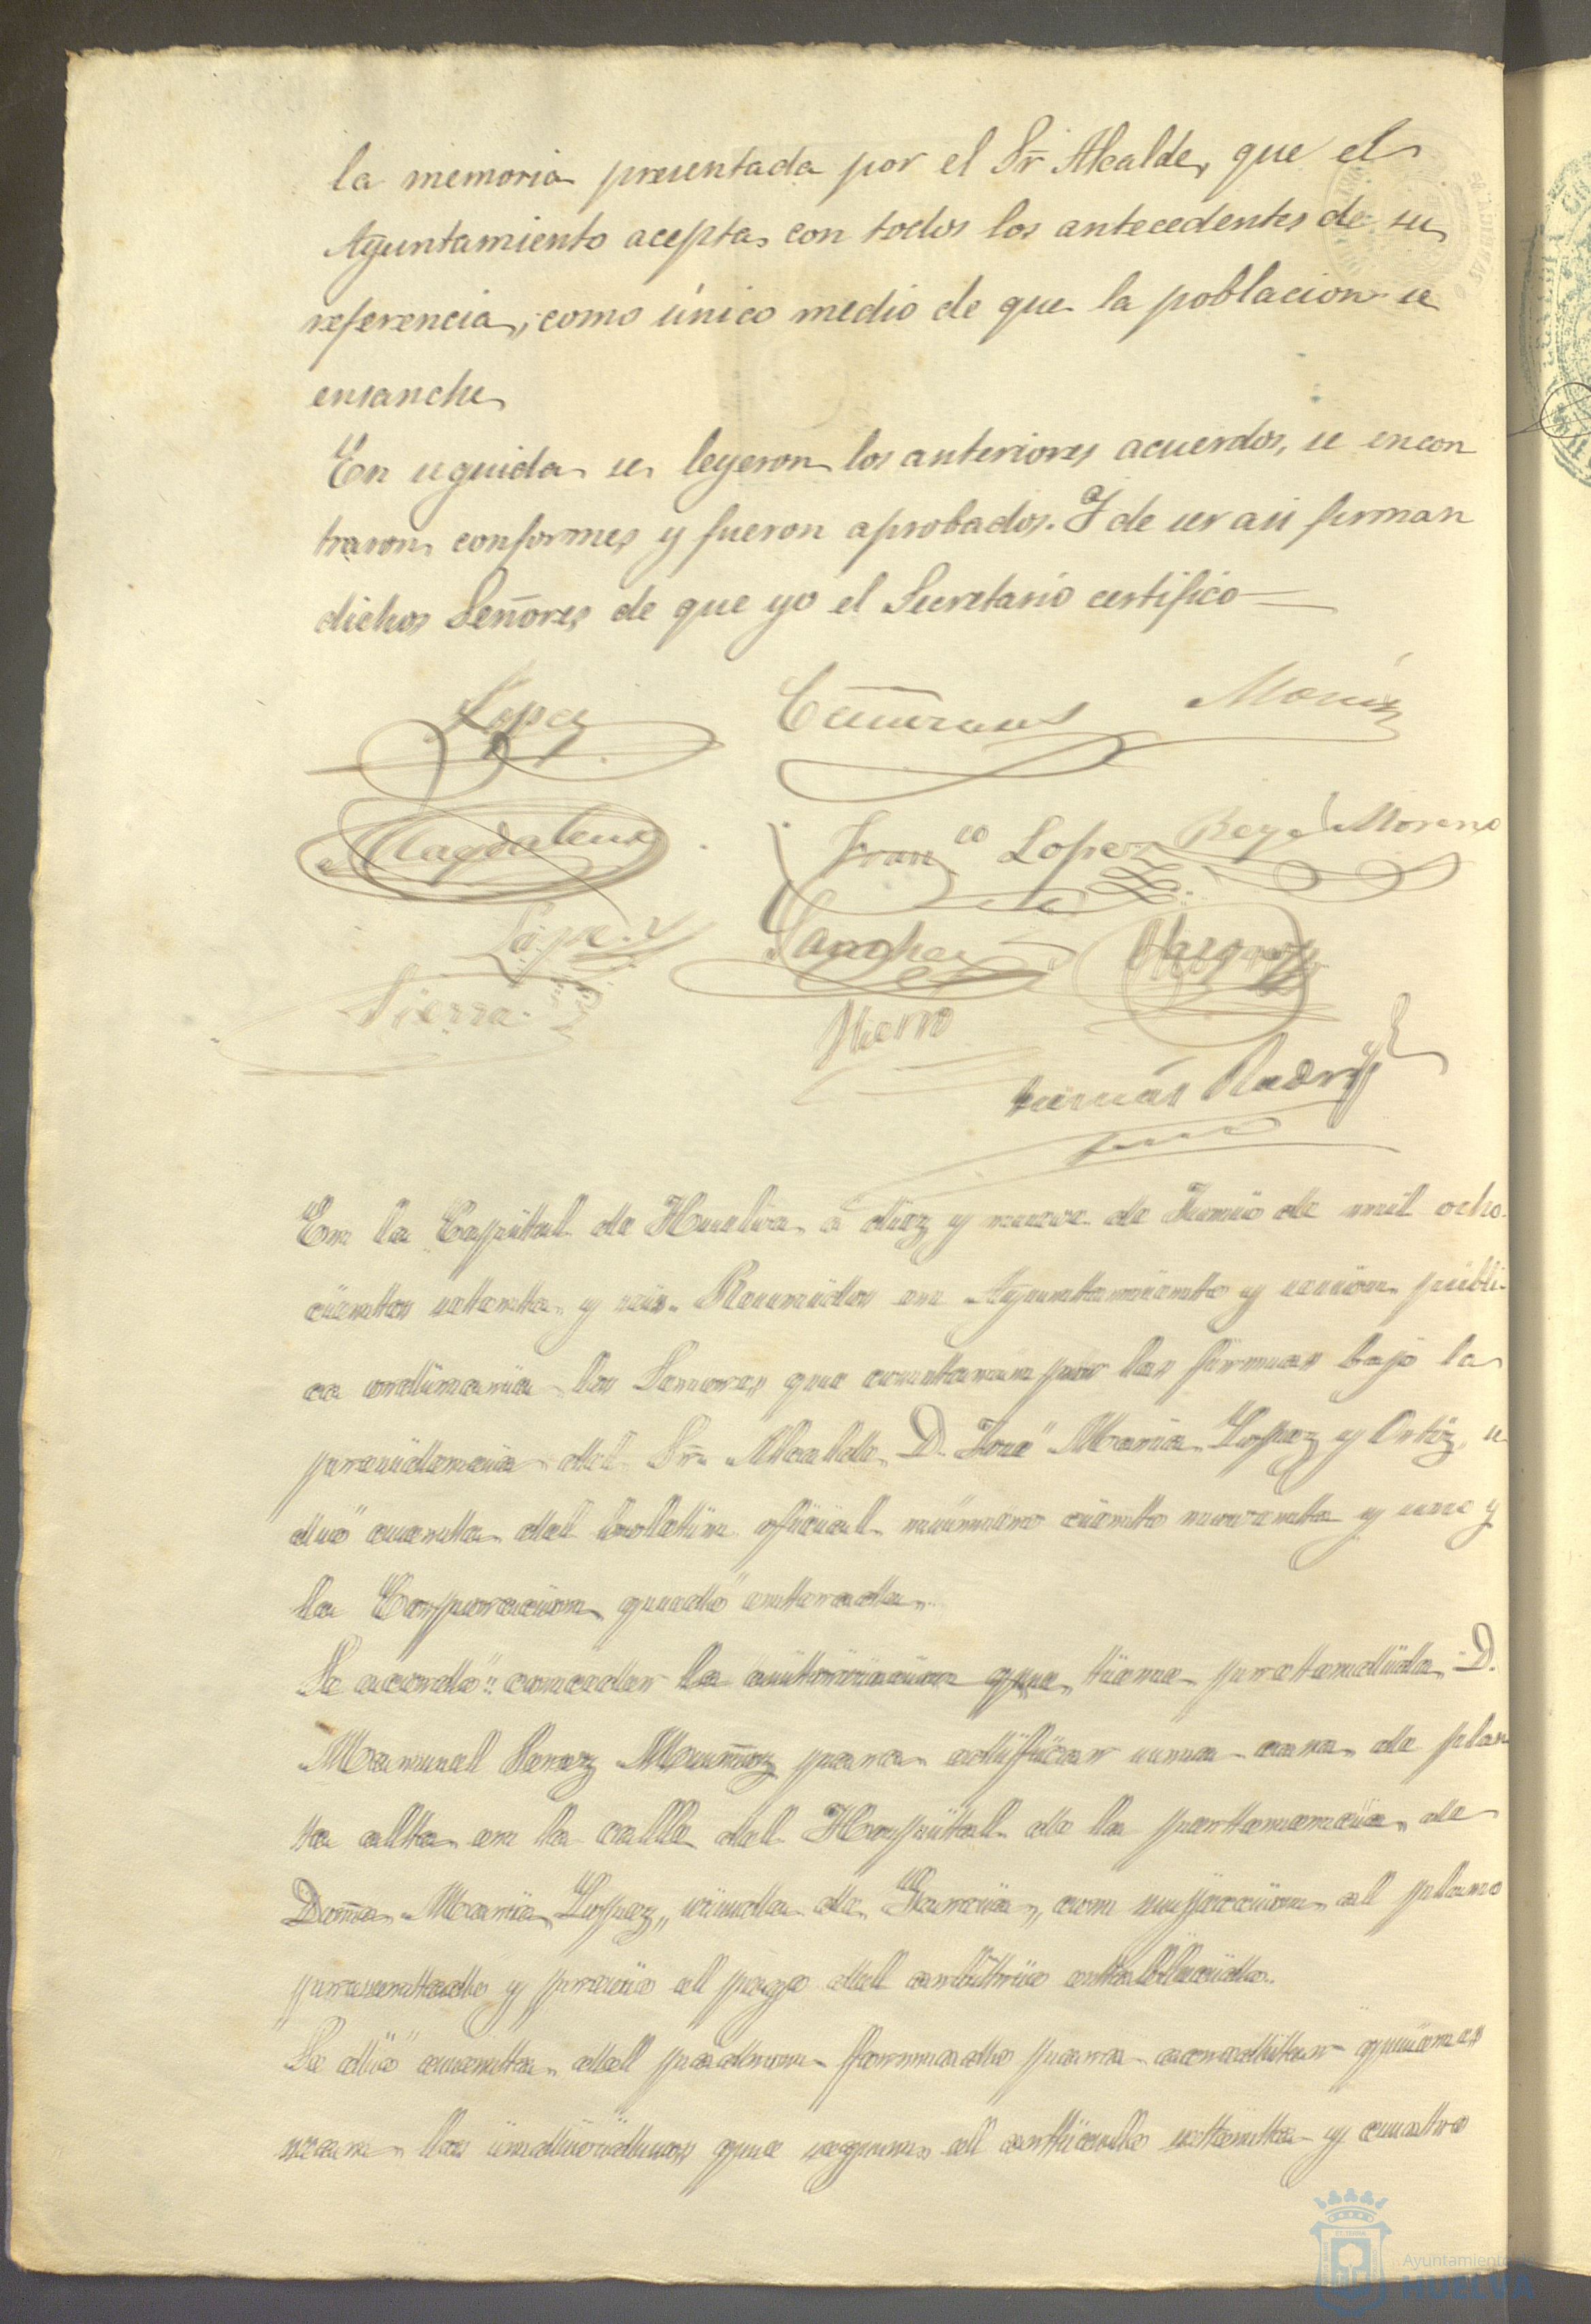 la memoria presentada por el Sr Alcalde, que el
Ayuntamiento acepta con todos los antecedentes de su
referencia, como único medio de que la poblacion se
ensanche
En seguida se leyeron los anteriores acuerdos, se encon
traron conformes y fueron aprobados. Y de ser asi firman
dichos Señores de que yo el Secretario certifico
Lopez
Magdalena Fran.co Lopez Moreno
Lopez Sanchez
Sierra Hierro
En la Capital de Huelva á diez y nueve de Junio de mil ocho-
cientos setenta y seis. Reunidos en Ayuntamiento y sesion públi-
ca ordinaria los Señores que constaran por las firmas bajo la
presidencia del Sr. Alcalde D. José Maria Lopez y Ortiz, se
dió cuenta del boletin oficial número ciento noventa y uno y
la Corporacion quedó enterada.
Se acordó conceder la autorizacion que tiene pretendida D.
Manuel Perez Muñoz para edificar una casa de plan
ta alta en la calle del Hospital de la pertenencia de
Doña Maria Lopez, viuda de Garcia, con sujecion al plano
presentado y previo el pago del arbitrio establecido.
Se dió cuenta del padron formado para acreditar quienes
sean los individuos que segun el artículo setenta y cuatro
Ayuntamiento
HUELVA